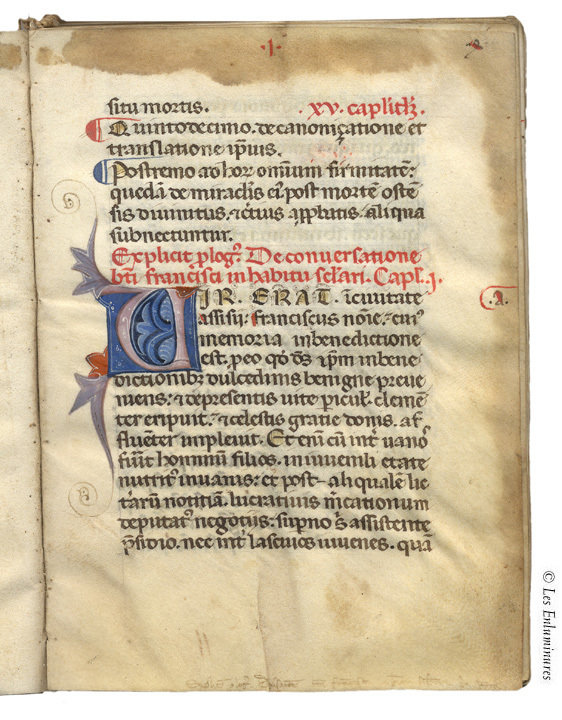 ·I·
situ mortis. xv. caplitlz.
Quintodecimo. de canonicatione et
translatione ipius.
Postremo ad hor omnium firmitate:
quedam de miraclis ei post morte oste
sis divinitus. et cius applatis. aliqua
subnectuntur.
Explicit plog. De conversatione
bti francisci in habitu sclari. Capl. j.
VIR. ERAT. i civitate
assisij. franciscus noie. cui
memoria in benedictione
est. p eo qd ds ipm in bene
dictionibz dulcedinis benigne preve
niens: et de presentis vite picul. cleme
ter eripuit. et celestis gratie donis. af
fluenter implevit. Et eni cu int vanos
fuit hominum filios. in iuvenili etate
nutrit in vanis: et post aliquale lit
teraru notitia. lucrativis mcationum
deputat negotiis: supno s assistente
psidio. nec int lascivos iuvenes. qua
·a·
© Les Enluminures